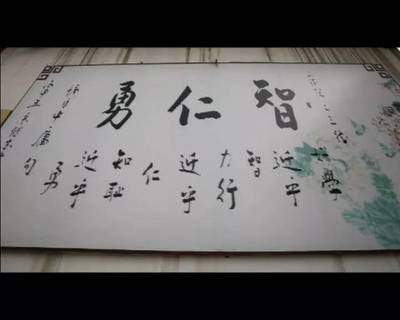 智仁勇
好學
近乎
智
力行
近乎
仁
知耻
近乎
勇
中庸句